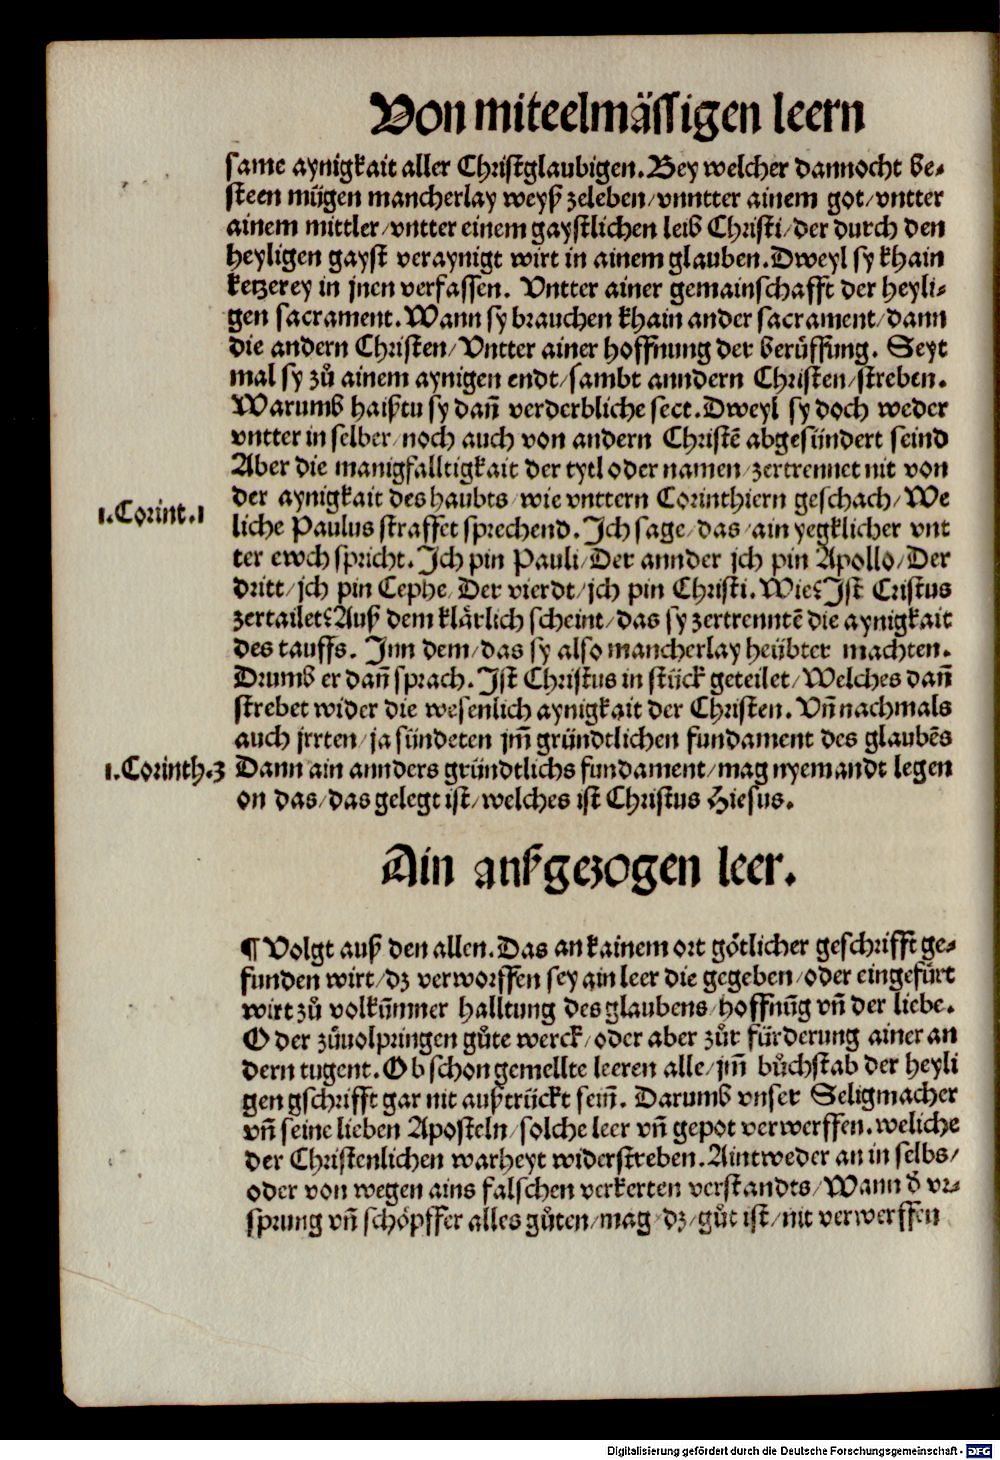 Von miteelmässigen leern
same aynigkait aller Christglaubigen. Bey welcher dannocht be-
steen mügen mancherlay weyß zeleben/vnntter ainem got/vntter
ainem mittler/vntter einem gaystlichen leib Christi/der durch den
heyligen gayst veraynigt wirt in ainem glauben. Dweyl sy khain
ketzerey in jnen verfassen. Vntter ainer gemainschafft der heyli-
gen sacrament. Wann sy brauchen khain ander sacrament/dann
die andern Christen/Vntter ainer hoffnung der berůffung. Seyt
mal sy zů ainem aynigen endt/sambt anndern Christen/streben.
Warumb haißtu sy dañ verderbliche sect. Dweyl sy doch weder
vntter in selber/noch auch von andern Christē abgesündert seind
Aber die manigfalltigkait der tytl oder namen/zertrennet nit von
der aynigkait des haubts/wie vnttern Corinthiern geschach/We
1.Corint.1
liche Paulus straffet sprechend. Ich sage/das/ain yegklicher vnt
ter ewch spricht. Ich pin Pauli/Der annder jch pin Apollo/Der
dritt/jch pin Cephe/Der vierdt/jch pin Christi. Wie? Ist Cristus
zertailet? Auß dem klärlich scheint/das sy zertrenntē die aynigkait
des tauffs. Inn dem/das sy also mancherlay heübter machten.
Drumb er dañ sprach. Ist Christus in stück geteilet/Welches dañ
strebet wider die wesenlich aynigkait der Christen. Vñ nachmals
auch jrrten/ja sündeten jm̄ gründtlichen fundament des glaubēs
1.Corinth.3
Dann ain annders gründtlichs fundament/mag nyemandt legen
on das/das gelegt ist/welches ist Christus Hiesus.
Ain außgezogen leer.
¶ Volgt auß den allen. Das an kainem ort götlicher geschrifft ge-
funden wirt/dz verworffen sey ain leer die gegeben/oder eingefürt
wirt zů volkum̄ner halltung des glaubens/hoffnūg vñ der liebe.
Oder zůuolpringen gůte werck/oder aber zůr fürderung ainer an
dern tugent. Ob schon gemellte leeren alle/jm̄ bůchstab der heyli
gen gschrifft gar nit außtrückt sein̄. Darumb vnser Seligmacher
vñ seine lieben Aposteln/solche leer vñ gepot verwerffen. weliche
der Christenlichen warheyt widerstreben. Aintweder an in selbs/
oder von wegen ains falschen verkerten verstandts/Wann d̄ vr-
sprung vñ schöpffer alles gůten/mag/dz/gůt ist/nit verwerffen
Digitalisierung gefördert durch die Deutsche Forschungsgemeinschaft - DFG